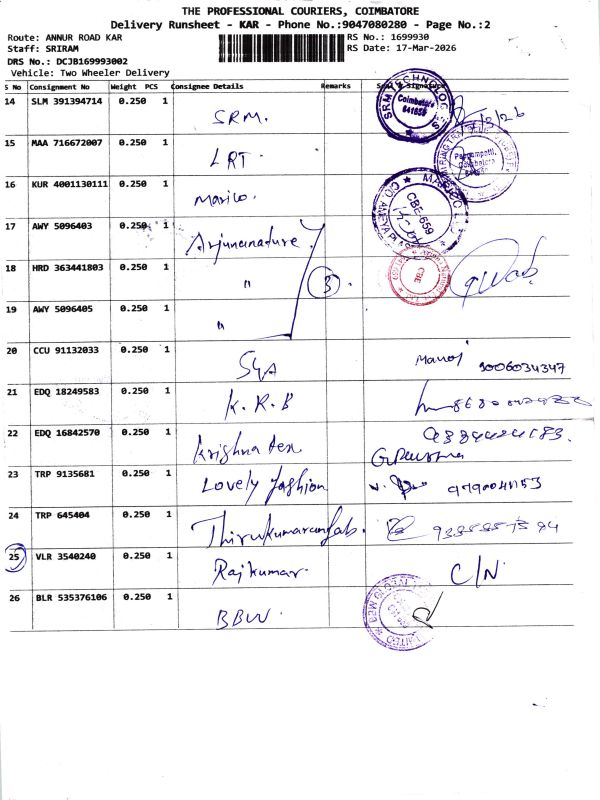 THE PROFESSIONAL COURIERS, COIMBATORE
Delivery Runsheet - KAR - Phone No.:9047080280 - Page No.:2
Route: ANNUR ROAD KAR
RS No.: 1699930
Staff: SRIRAM
RS Date: 17-Mar-2026
DRS No.: DCJB169993002
Vehicle: Two Wheeler Delivery
S No Consignment No Weight PCS Consignee Details Remarks Signature
14 SLM 391394714 0.250 1 SRM.
SRM TECHNOLOGIES Coimbatore
15 MAA 716672007 0.250 1 LRT.
16 KUR 4001130111 0.250 1 Marico.
CBE-659
17 AWY 5096403 0.250 1
18 HRD 363441803 0.250 1 " 3
CBE
19 AWY 5096405 0.250 1 "
20 CCU 91132033 0.250 1 Manoj 9006034347
21 EDQ 18249583 0.250 1 K.R.B
22 EDQ 16842570 0.250 1 Krishna
23 TRP 9135681 0.250 1 Lovely fashion
24 TRP 645404 0.250 1
25 VLR 3540240 0.250 1 Rajkumar. C/N
26 BLR 535376106 0.250 1 BBW.